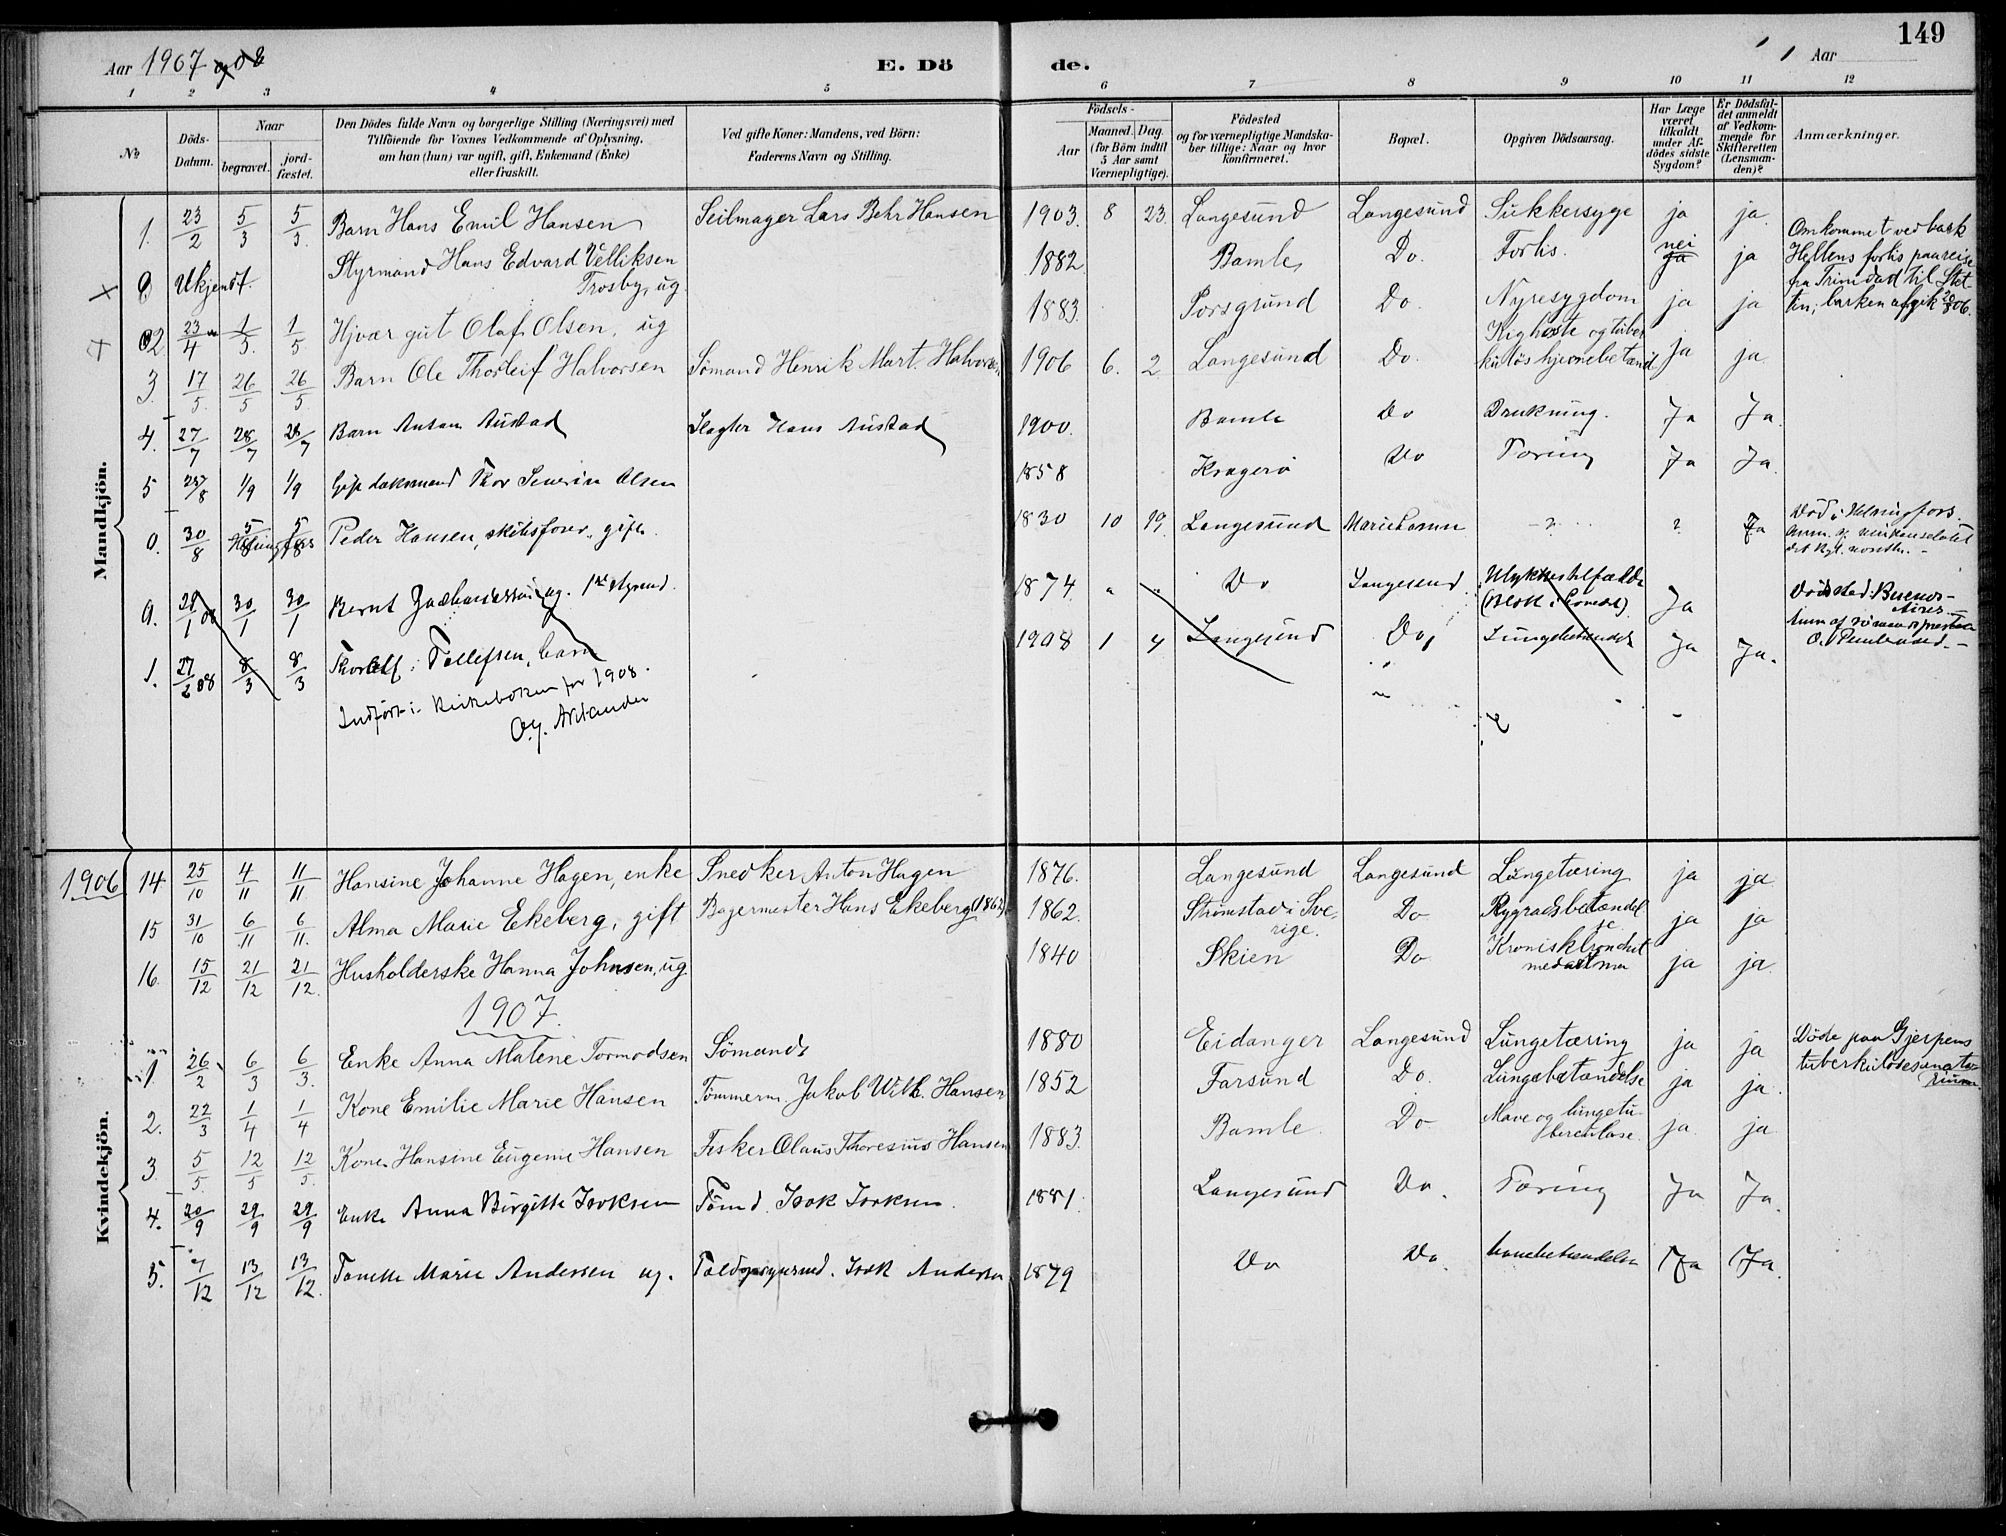 149
Aar 1907 og 08
E. Dö de.
Aar
1 2 3 4 5 6 7 8 9 10 11 12
No
Döds-Datum.
Naar
begravet.
jord-fæstet.
Den Dödes fulde Navn og borgerlige Stilling (Næringsvei) med
Tilföiende for Voxnes Vedkommende af Oplysning,
om han (hun) var ugift, gift, Enkemand (Enke)
eller fraskilt.
Ved gifte Koner: Mandens, ved Börn:
Faderens Navn og Stilling.
Födsels-
Aar
Maaned. Dag.
(for Börn indtil 5 Aar samt Værnepligtige).
Födested
og for værnepligtige Mandska-
ber tillige: Naar og hvor
konfirmeret.
Bopæl.
Opgiven Dödsaarsag.
Har Læge været tilkaldt under Af-dödes sidste Sygdom?
Er Dödsfal-det anmeldt af Vedkom-mende for Skifteretten (Lensman-den)?
Anmærkninger.
Mandkjön.
1. 23/2 5/3 5/3 Barn Hans Emil Hansen Seilmager Lars Behr Hansen 1903 8 23 Langesund Langesund Sukkersyge ja ja
Ukjendt. Styrmand Hans Edvard Velliksen Trosby, ug 1882 Bamle Do. Forlis. nei ja ja
Omkommet ved bark
Hellens forlis paa reise
fra Trinidad til Stet-
tin, barken afgik
2 23/4 1/5 1/5 Olaf Olsen, ug 1883. Porsgrund Do. Nyresygdom ja ja
3. 17/5 26/5 26/5 Barn Ole Thorleif Halvorsen Sømand Henrik Mart. Halvorsen 1906 6. 2. Langesund Do. Kighoste og tuber-
kuløs hjernebetænd ja ja
4. 27/7 28/7 28/7 Barn Anton Austad Slagter Hans Austad 1900. Bamle Do Drukning. Ja Ja
5 /8 1/9 1/9 Thor Severin Olsen 1858 Kragerø Do Tæring Ja Ja.
0. 30/8 Peder Hansen, skibsfører, gift. 1830 10 19 Langesund ? ? Ja
Død i Helsingfors.
0. 30/1 30/1 Bernt ug. 1ste styrmd. 1874 Do Langesund Ulykkestilfælde Ja
Dødssted: Buenos-
Aires
1. 27/2 08 8/3 8/3 Tollefsen, barn 1908 1 4 Langesund Do Lungebetændelse Ja Ja.
Indført i Kirkeboken for 1908.
Kvindekjön.
1906 14 25/10 4/11 11/11 Hansine Johanne Hagen, enke Snedker Anton Hagen 1876. Langesund Langesund Lungetæring ja ja
15 31/10 6/11 6/11. Alma Marie Ekeberg, gift Bagermester Hans Ekeberg (1862) 1862. Strømstad i Sve-
rige. Do Rygradsbetændel
se ja ja
16. 15/12 21/12 21/12. Husholderske Hanna Johnsen, ug 1840 Skien Do Kronisk bronchit
med astma ja ja.
1907.
1. 26/2 6/3 6/3. Enke Anna Matene Tormodsen Sømands 1880 Eidanger Langesund Lungetæring ja ja
Døde paa Gjerpens
tuberkulosesanato-
rium
2. 22/3 1/4 1/4 Kone Emilie Marie Hansen Tømmerm. Jakob Wilh. Hansen 1852 Farsund Do. Lungebetændelse ja ja.
3 5/5. 12/5 12/5. Kone Hansine Eugenie Hansen Fisker Olaus Thoresius Hansen 1883. Bamle. Do Mave og lungetu-
berculose. ja. ja
4. 20/9 29/9 29/9 Enke Anna Birgitte Isaksen Tømd. Isak Isaksen. 1881. Langesund Do. Tæring Ja Ja.
5. 7/12 13/12 13/12. Tomine Marie Andersen ug. Isak Andersen 1879 Do Do. Ja Ja.